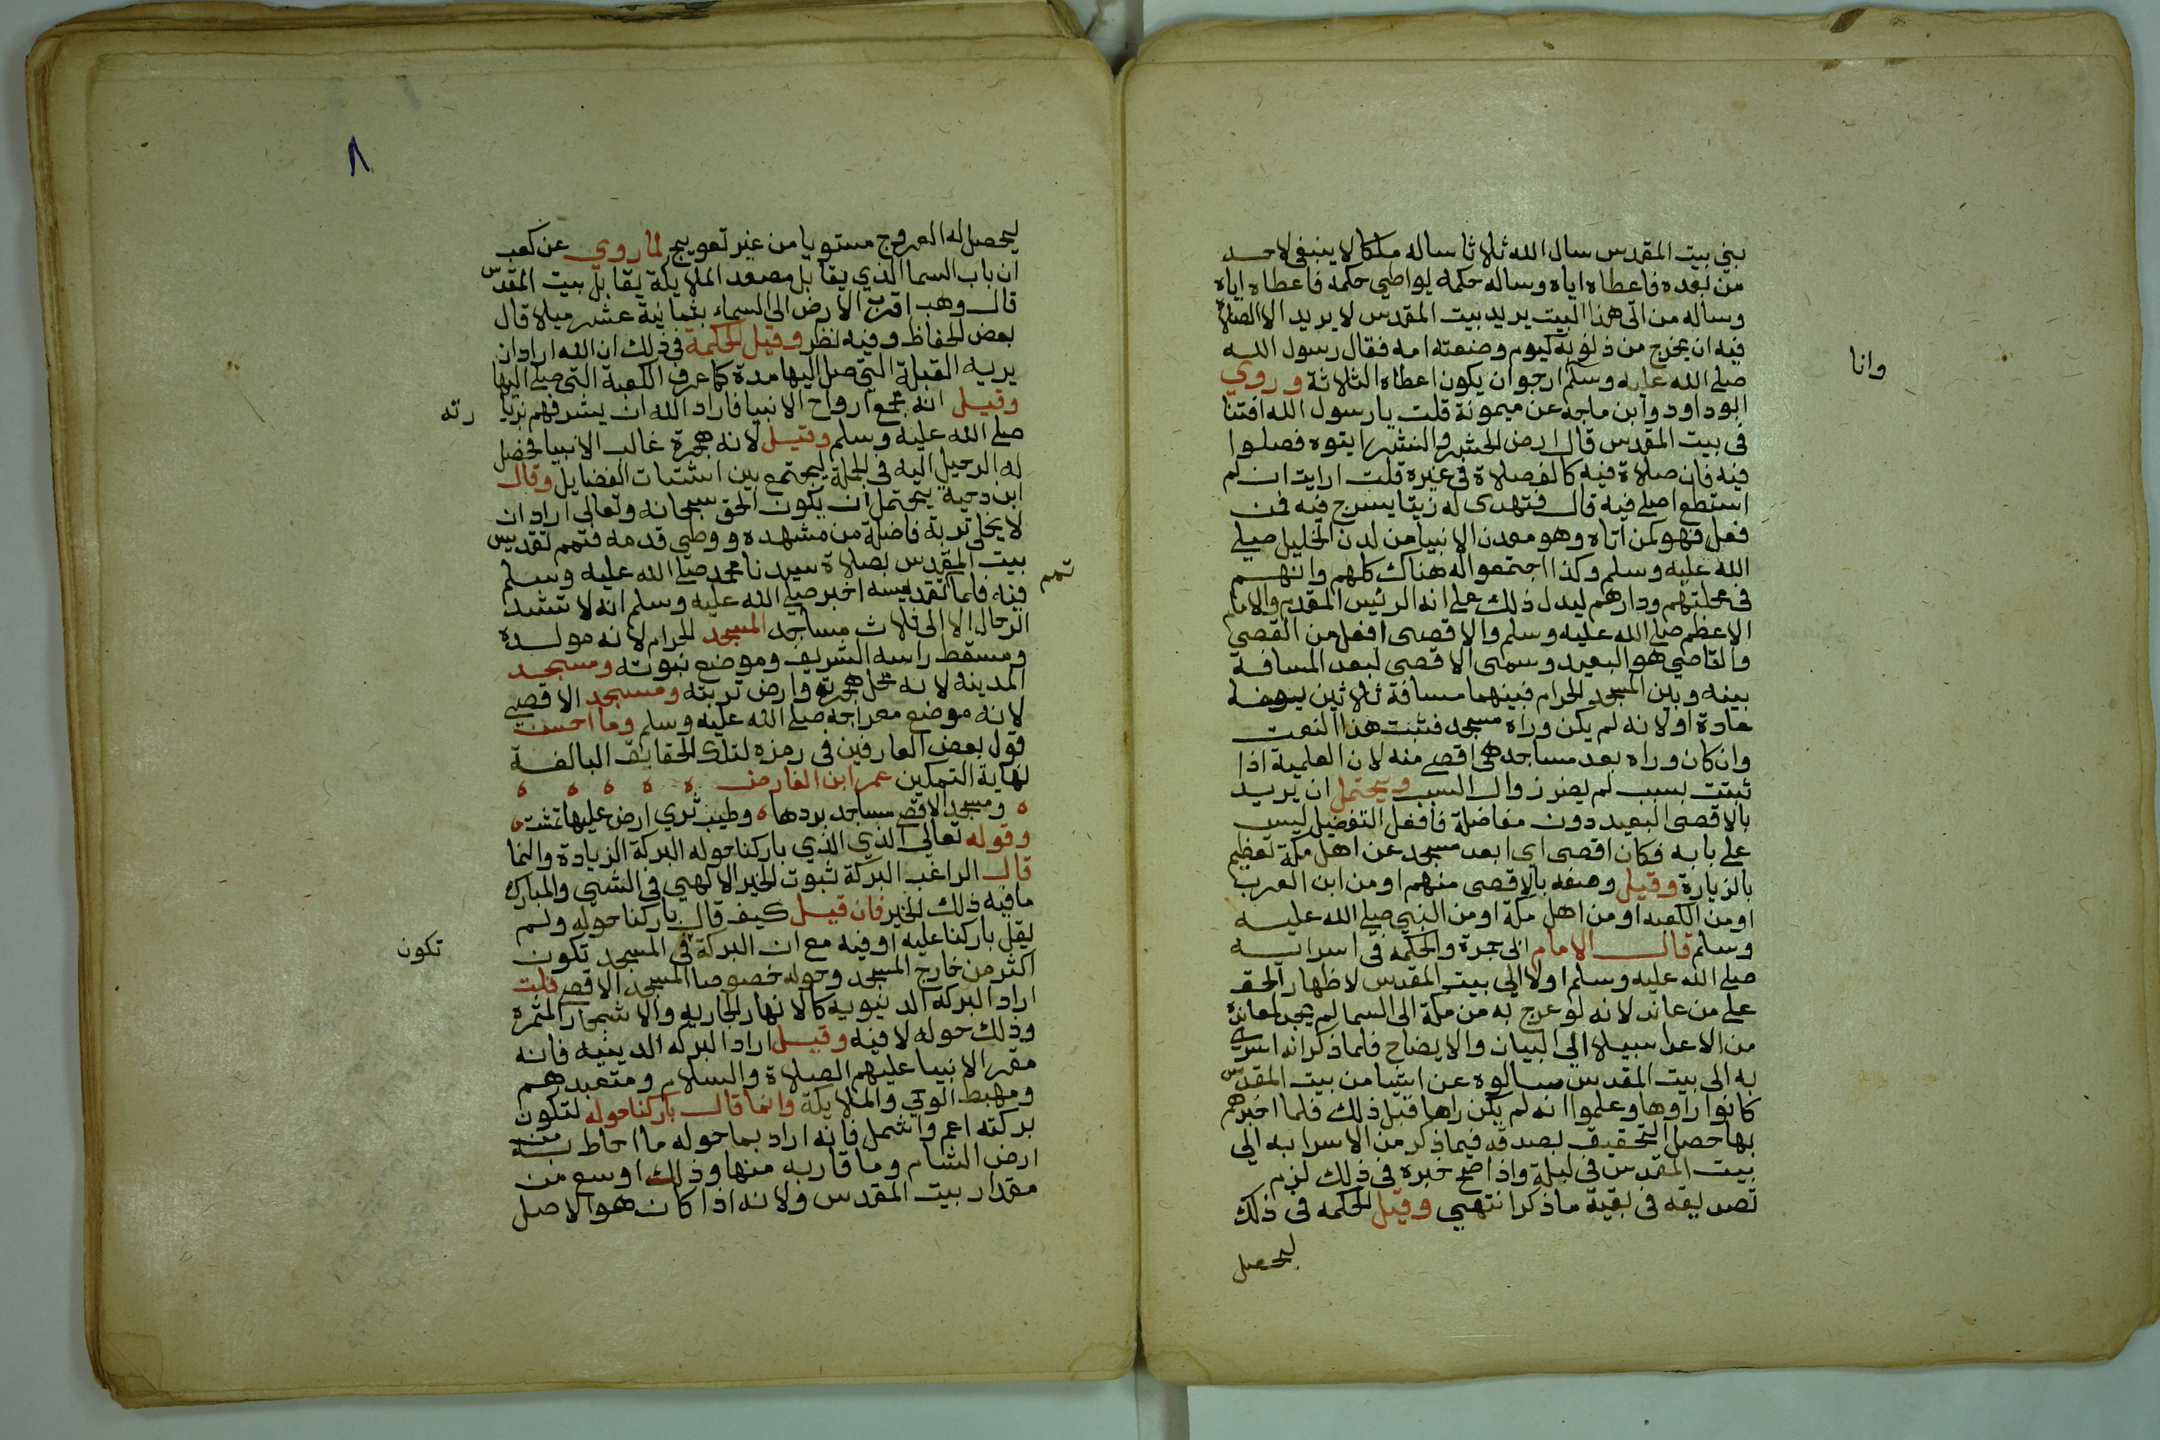 بني بيت المقدس سال الله ثلاثا ساله ملكا لا ينبغي لاحد
من بعده فاعطاه اياه وساله حكمه يواطي حكمه فاعطاه اياه
وساله من اتى هذا البيت يريد بيت المقدس لا يريد الا الصلاة
فيه ان يخرج من ذنوبه كيوم وضعته امه فقال رسول الله
وانا
صلى الله عليه وسلم ارجو ان يكون اعطاه الثلاثة وروي
ابو داود وابن ماجه عن ميمونة قلت يا رسول الله افتنا
في بيت المقدس قال ارض المحشر والنشر ايتوه فصلوا
فيه فان صلاة فيه كالف صلاة في غيره قلت ارايت ان لم
استطع اصلي فيه قال فتهدى له زيتا يسرج فيه فمن
فعل فهو كمن اتاه وهو معدن الانبيا من لدن الخليل صلى
الله عليه وسلم وكذا اجتمعوا له هناك كلهم وانهم
في محلتهم ودارهم ليدل ذلك على انه الرئيس المقدم والامام
الاعظم صلى الله عليه وسلم والاقصى افعل من القصي
والقاصي هو البعيد وسمى الاقصى لبعد المسافة
بينه وبين المسجد الحرام فبينهما مسافة ثلاثين
عادة او لانه لم يكن وراه مسجد فثبت هذا النعت
وان كان وراه بعد مساجد هي اقصى منه لان العلمية اذا
ثبتت بسبب لم يضر زوال السبب ويحتمل ان يريد
بالاقصى البعيد دون مفاضلة فافعل التفضيل ليس
على بابه فكان اقصى اي ابعد مسجد عن اهل مكة تعظيم
بالزيارة وقيل وصفه بالاقصى منهم او من ابن العرب
او من الكعبه او من اهل مكة او من النبي صلى الله عليه
وسلم قال الامام ابي جمرة والحكمه في اسرائه
صلى الله عليه وسلم اولا الي بيت المقدس لاظهار الحق
على من عاند لانه لو عرج به من مكة الى السما لم يجد لمعاندة
من الاعدا سبيلا الي البيان والايضاح فلما ذكر انه اسري
به الى بيت المقدس سالوه عن اشيا من بيت المقدس
كانوا راوها وعلموا انه لم يكن راها قبل ذلك فلما اخبرهم
بها حصل التحقيق بصدقه فيما ذكر من الاسرا به الي
بيت المقدس في ليلة واذا صح خبره في ذلك لزم
تصديقه في بقية ما ذكر انتهي وقيل الحكمه في ذلك
ليحصل
٨
ليحصل له العروج مستويا من غير تعويج لما روي عن كعب
ان باب السما الذي يقابل مصعد الملايكة يقابل بيت المقدس
قال وهب اقرب الارض الى السماء بثمانية عشر ميلا قال
بعض الحفاظ وفيه نظر وقيل الحكمة في ذلك ان الله اراد ان
يريه القبلة التي صلى اليها مدة كما عرف الكعبة التي صلى اليها
وقيل انه مجمع ارواح الانبيا فاراد الله ان يشرفهم بزيا
رته
صلى الله عليه وسلم وقيل لانه هجرة غالب الانبيا فحصل
له الرحيل اليه في الجملة ليجتمع بين اشتات الفضايل وقال
ابن دحية يحتمل ان يكون الحق سبحانه وتعالى اراد ان
لا يخلي تربة فاضلة من مشهده ووطي قدمه فتمم تقديس
بيت المقدس بصلاة سيدنا محمد صلى الله عليه وسلم
تمم
فيه فلما تقديسه اخبر صلى الله عليه وسلم انه لا تشد
الرحال الا الى ثلاث مساجد المسجد الحرام لانه مولده
ومسقط راسه الشريف وموضع نبوته ومسجد
المدينه لانه محل هجرته وارض تربته ومسجد الاقصى
لانه موضع معراجه صلى الله عليه وسلم وما احسن
قول بعض العارفين في رمزه لتلك الحقايق البالغة
نهاية التمكين عمر ابن الفارض ه ه ه ه ه
ه ومسجد الاقصى مساجد بردها ه وطيب ثري ارض عليها تمشت ه
وقوله تعالى الذي الذي باركنا حوله البركة الزيادة والنما
قال الراغب البركة ثبوت الخير الالهي في الشي والمبارك
ما فيه ذلك الخير فان قيل كيف قال باركنا حوله ولم
يقل باركنا عليه او فيه مع ان البركة في المسجد تكون
تكون
اكثر من خارج المسجد وحوله خصوصا المسجد الاقصى قلت
اراد البركه الدنيويه كالانهار الجاريه والاشجار المثمرة
وذلك حوله لا فيه وقيل اراد البركه الدينيه فانه
مقر الانبيا عليهم الصلاة والسلام ومتعبدهم
ومهبط الوحي والملايكة وانما قال باركنا حوله لتكون
بركته اعم واشمل فانه اراد بما حوله ما احاط به من
ارض الشام وما قاربه منها وذلك اوسع من
مقدار بيت المقدس ولانه اذا كان هو الاصل